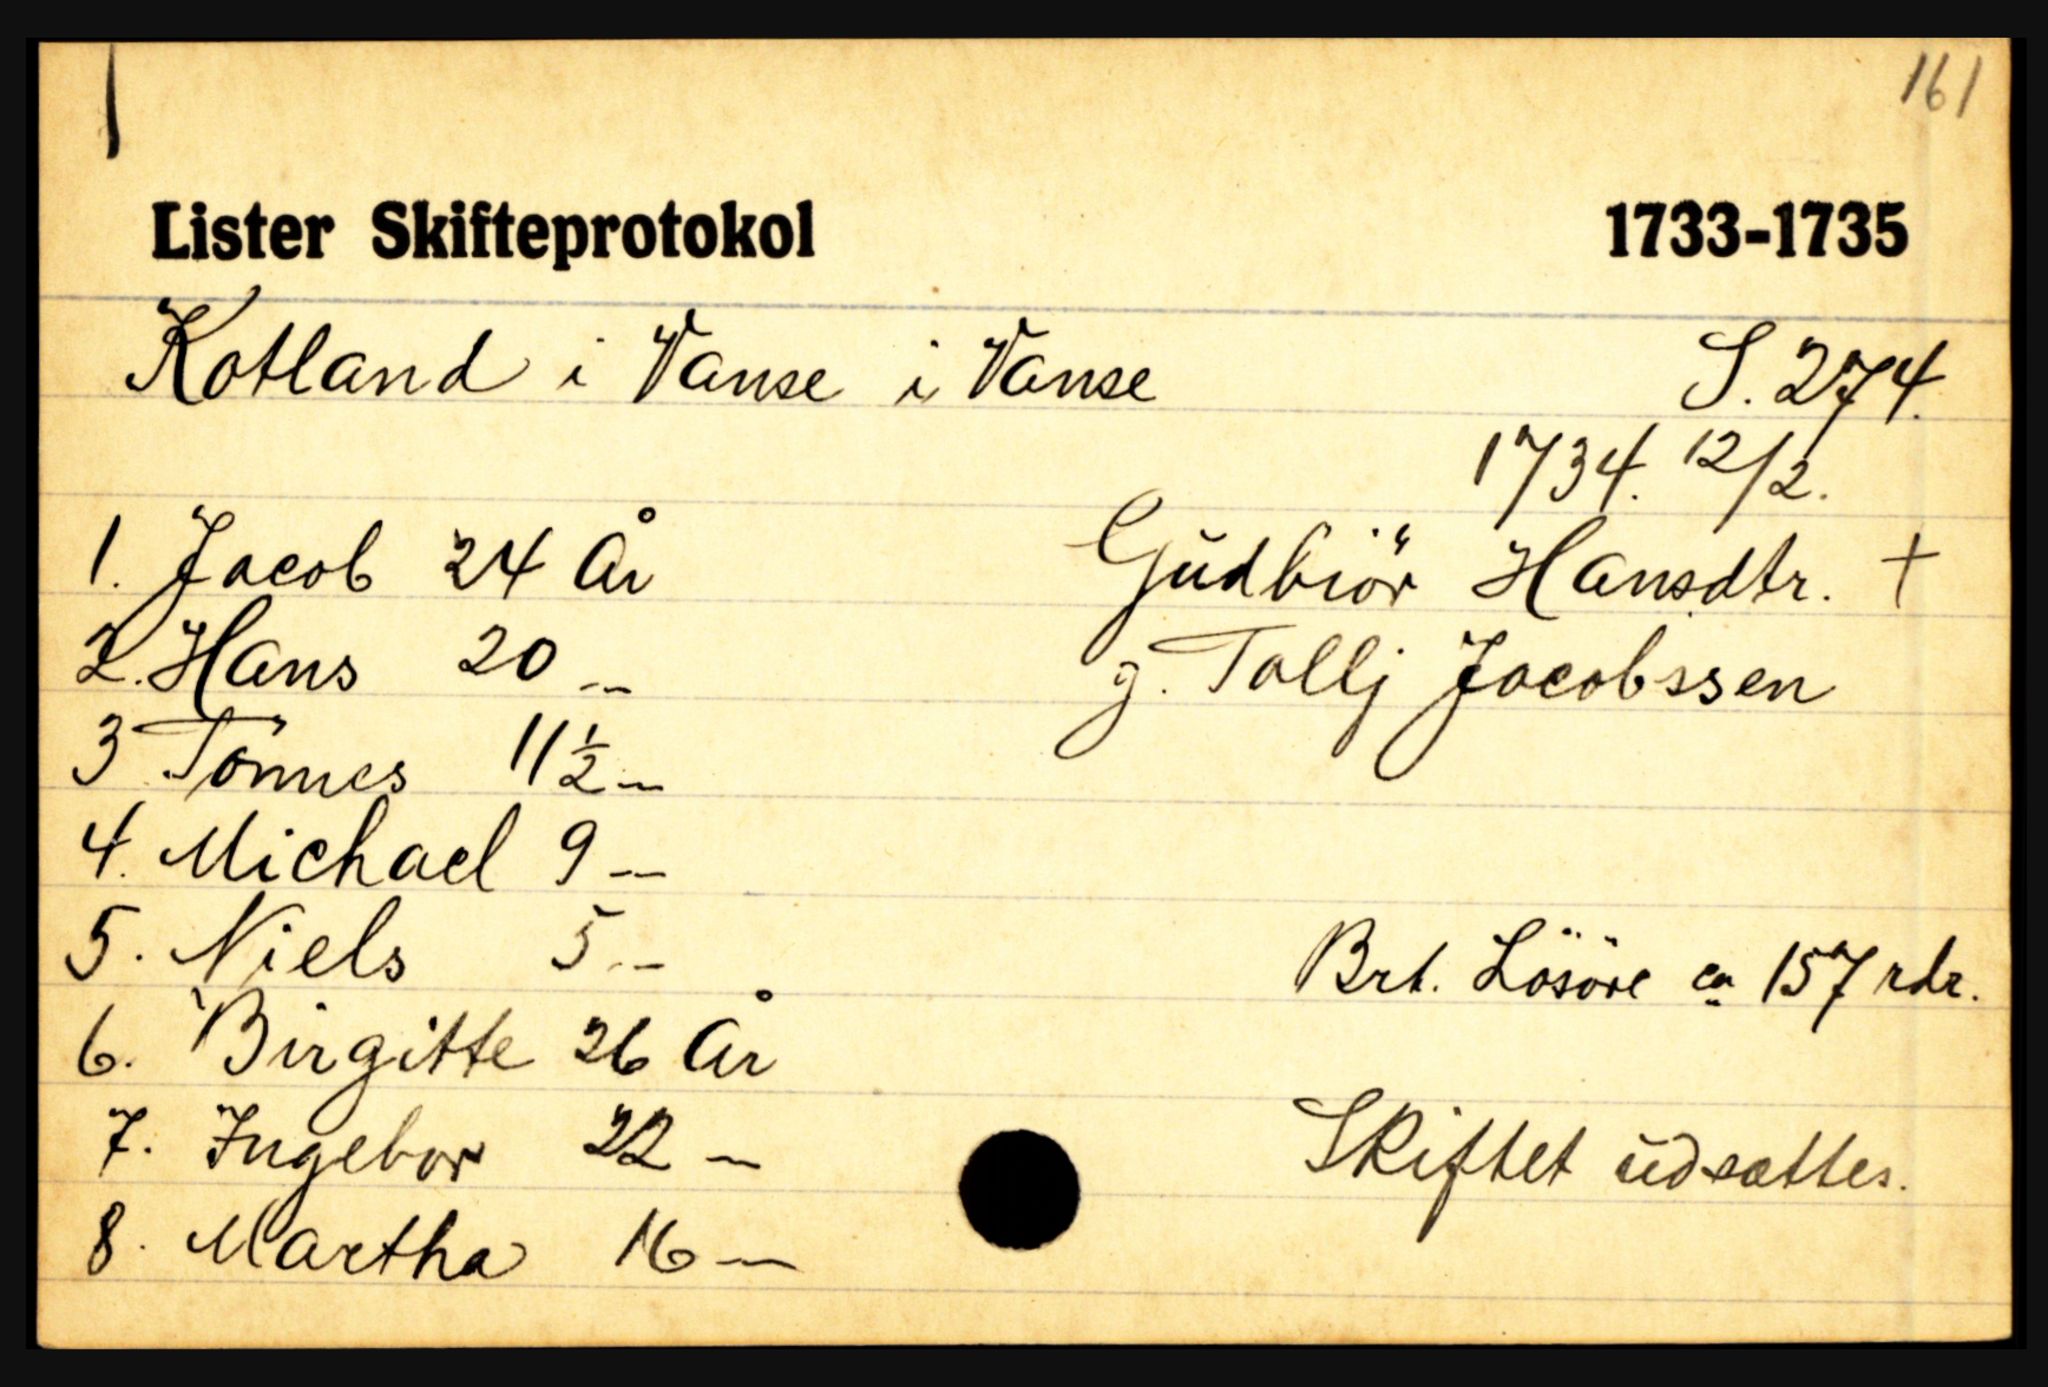 161
Lister Skifteprotokol 1733-1735
Kotland i Vanse i Vanse S. 274.
1734. 12/2.
1. Jacob 24 År Gudbiör Hansdtr. +
2. Hans 20 — g. Tollj Jacobssen
3 Tönnes 11 1/2 —
4. Michael 9 —
5. Niels 5 — Brt. Lösöre ca 157 rdr.
6. Birgitte 26 År
7. Ingebor 22 — Skiftet udsættes.
8. Martha 16 —